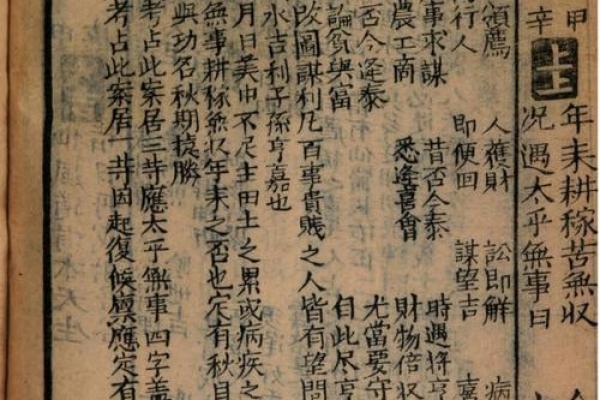 甲
辛
上上
年来耕稼苦無収
况遇太平無事日
人獲財 訟即解 病
行人 即便回 謀望吉
事求謀 昔否今泰 時遇將亨
農工商 悉逢喜會 財物倍収
否今逢泰 尤當要守
論貧與富 自此尽亨
改圖謀利凡百事貴賤之人皆有望問
水吉利子孫亨嘉也
月日美中不足主田土之累或病疾之
無事耕稼無収年来之否也定有秋自
與功名秋期捷勝
考占此案居三寺應太乎無事四字盖
考占此案居一寺因起復候禀應定有